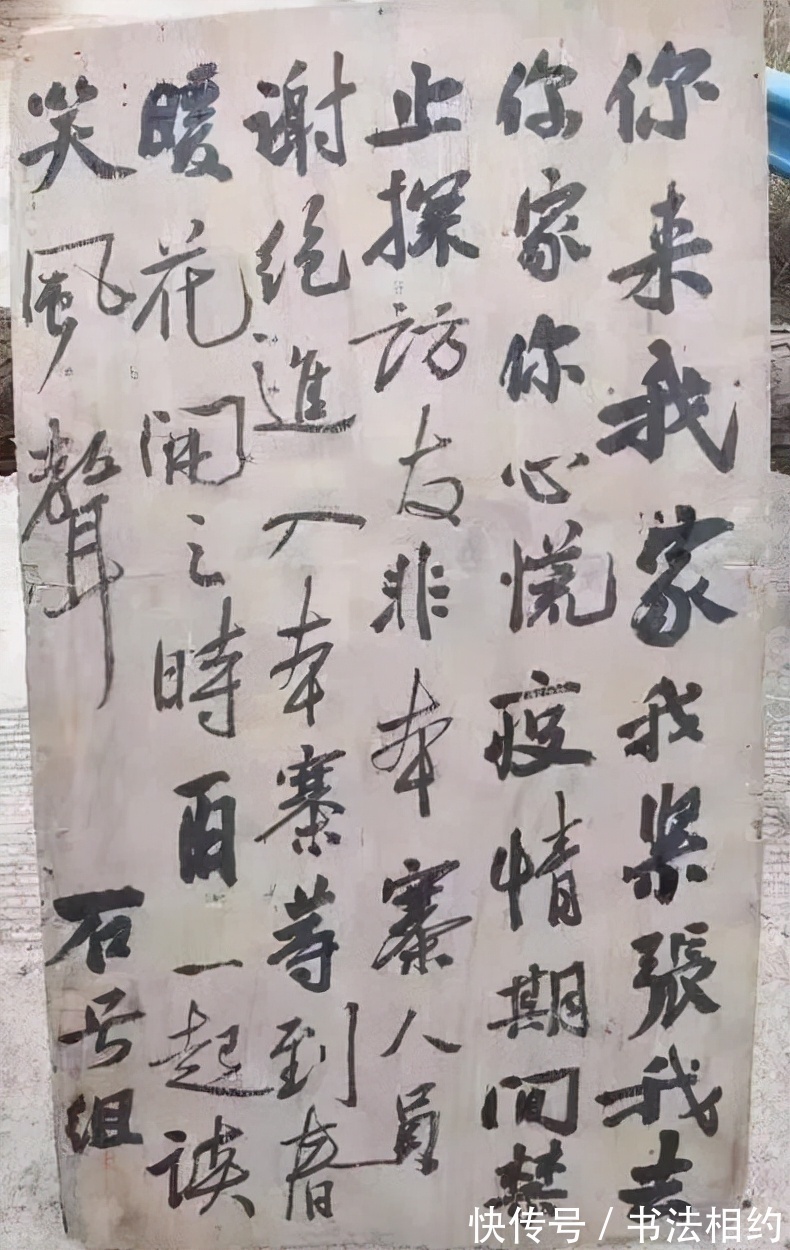 你来我家我紧張我去
你家你心慌疫情期间禁
止探访友非本寨人员
谢绝進入本寨等到春
暖花開之時再一起谈
笑風聲
石号组
快传号 / 书法相约